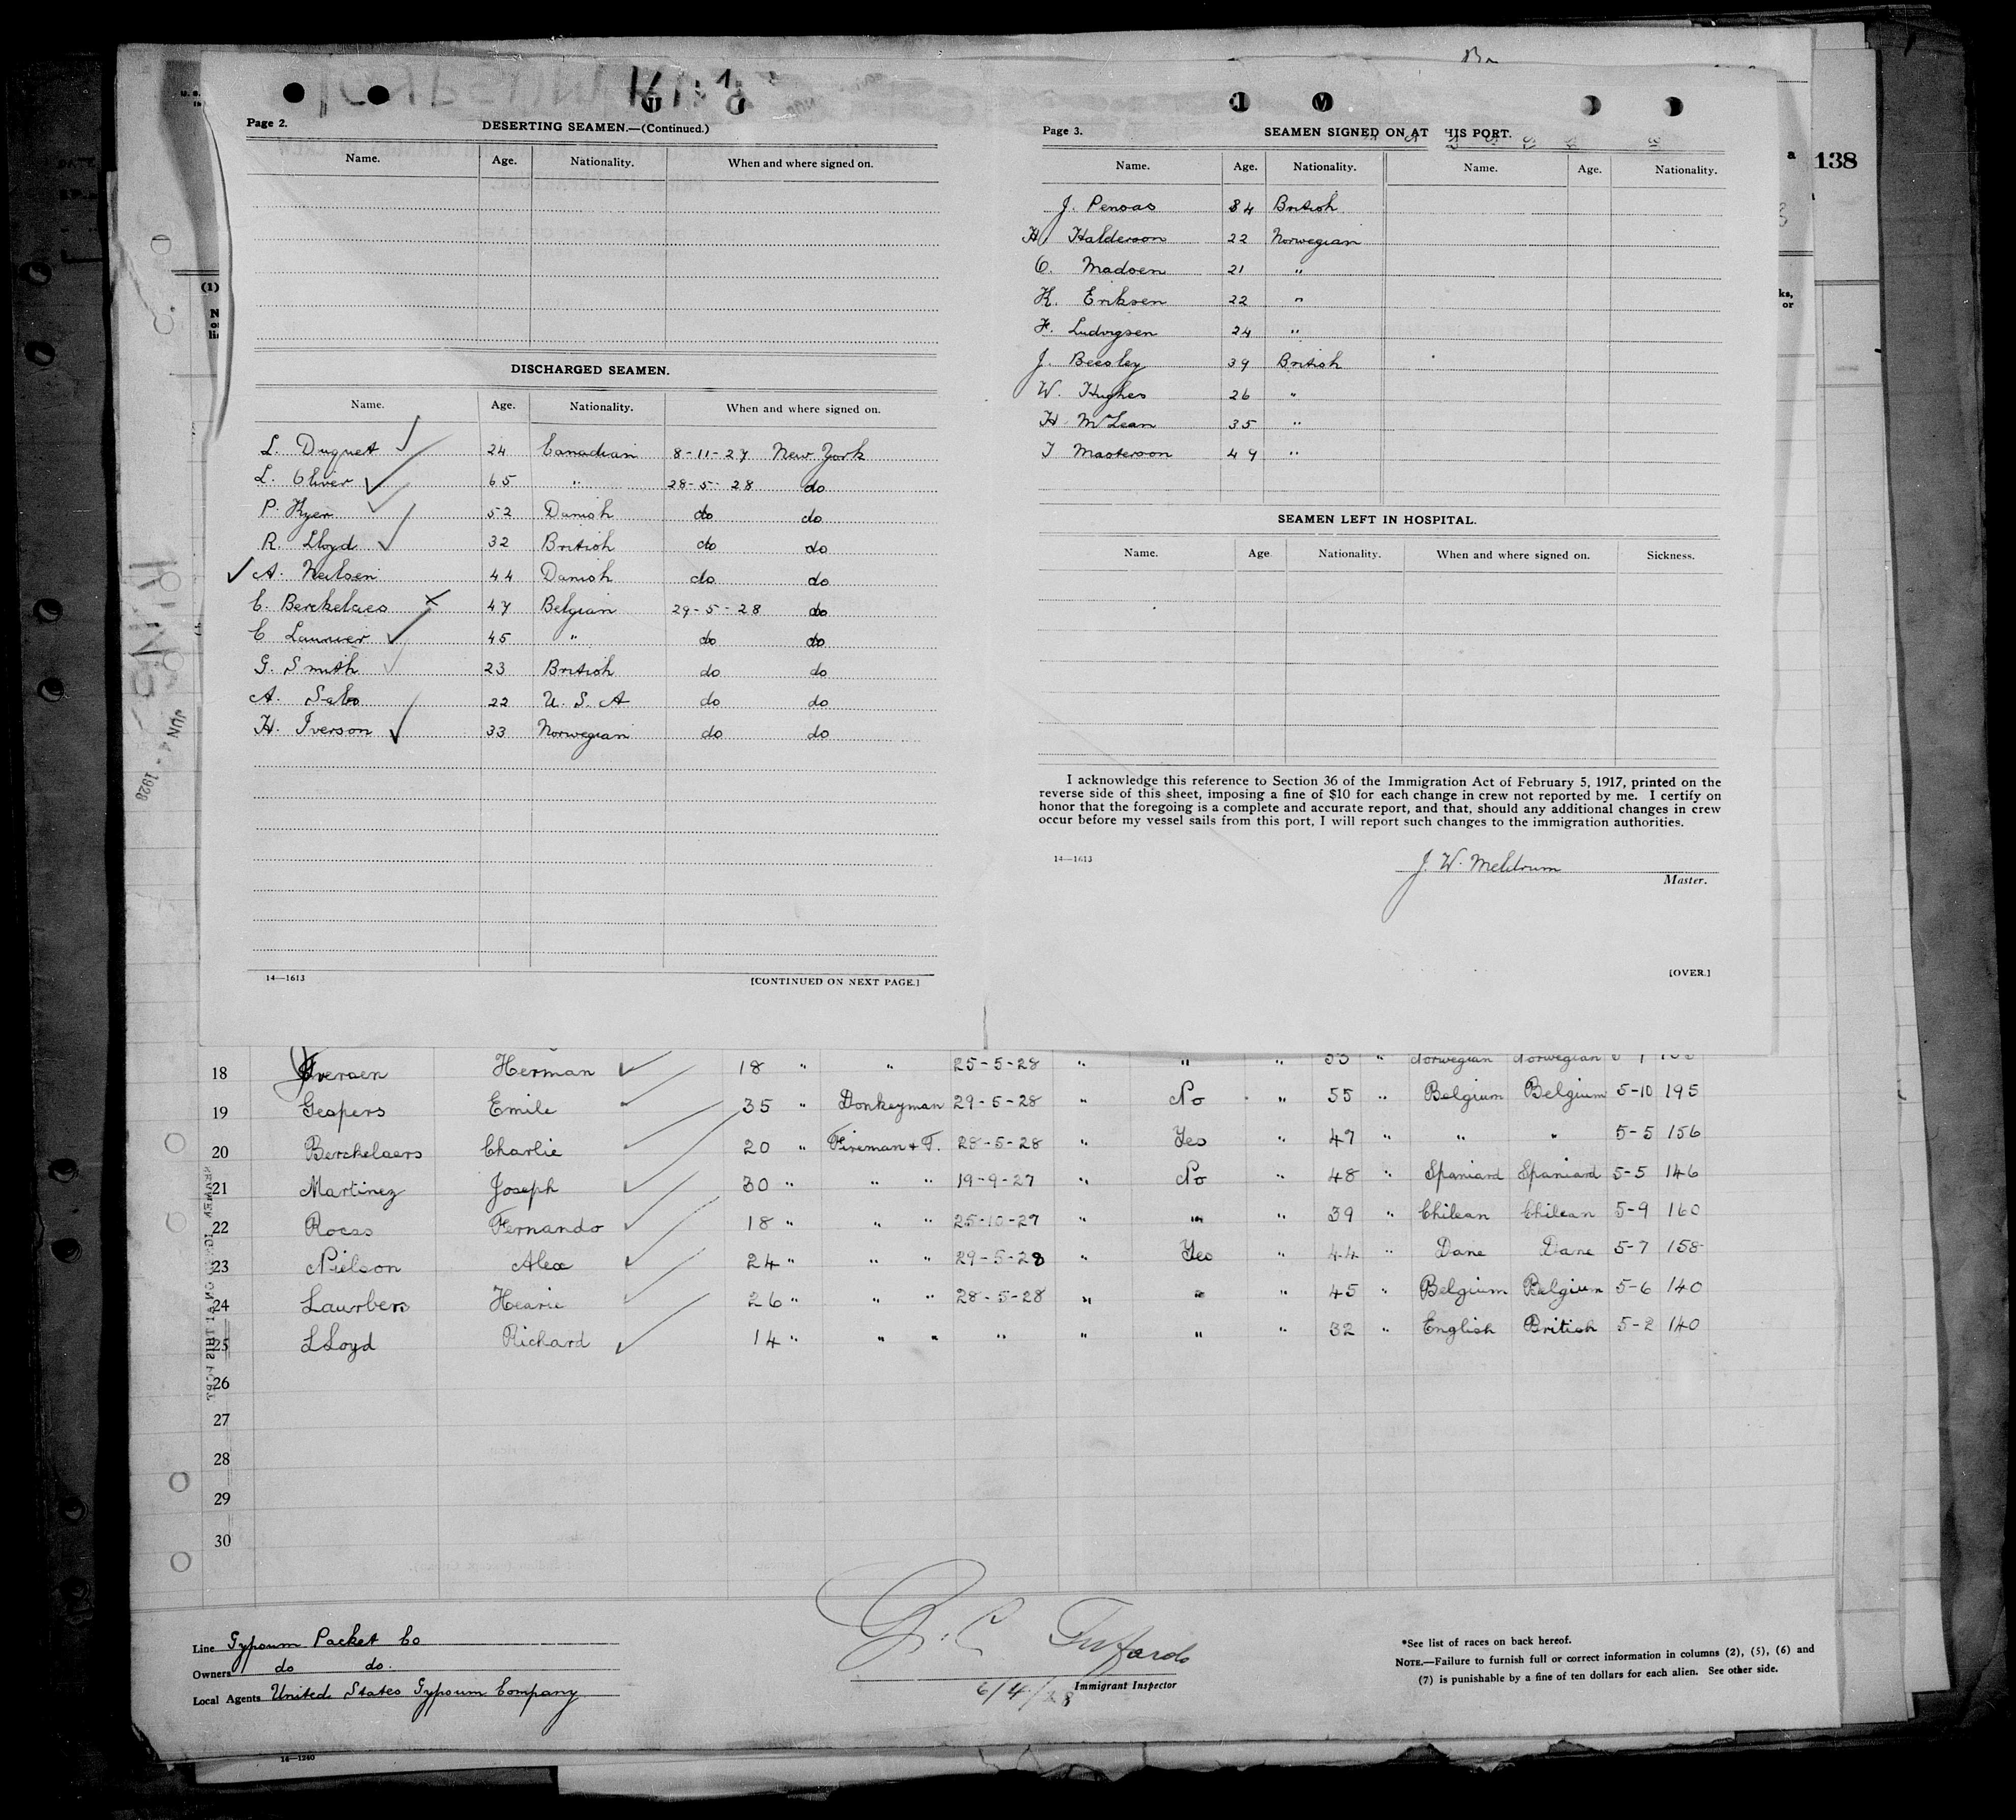 138
Page 2.
DESERTING SEAMEN.—(Continued.)
Name. Age. Nationality. When and where signed on.
DISCHARGED SEAMEN.
Name. Age. Nationality. When and where signed on.
L. Duquet 24 Canadian 8-11-27 New York
L. Oliver 65 " 28-5-28 do
P. Kyer 52 Danish do do
R. Lloyd 32 British do do
A. Neilsen 44 Danish do do
C. Berckelaes 47 Belgian 29-5-28 do
C Laurier 45 " do do
G. Smith 23 British do do
A. Sabo 22 U. S. A do do
H. Iverson 33 Norwegian do do
14—1613
[CONTINUED ON NEXT PAGE.]
Page 3.
SEAMEN SIGNED ON AT HIS PORT.
Name. Age. Nationality. Name. Age. Nationality.
J. Penoas 34 British
H. Halderson 22 Norwegian
O. Madsen 21 "
K. Eriksen 22 "
F. Ludvigsen 24 "
J. Beesley 39 British
W. Hughes 26 "
H McLean 35 "
J Masterson 49 "
SEAMEN LEFT IN HOSPITAL.
Name. Age. Nationality. When and where signed on. Sickness.
I acknowledge this reference to Section 36 of the Immigration Act of February 5, 1917, printed on the
reverse side of this sheet, imposing a fine of $10 for each change in crew not reported by me. I certify on
honor that the foregoing is a complete and accurate report, and that, should any additional changes in crew
occur before my vessel sails from this port, I will report such changes to the immigration authorities.
14—1613
J. W. Meldrum
Master.
[OVER.]
JUN 4 - 1928
18 Iversen Herman 18 " " 25-5-28 " " " 33 " Norwegian Norwegian
19 Gespers Emile 35 " Donkeyman 29-5-28 " No " 55 " Belgium Belgium 5-10 195
20 Berckelaers Charlie 20 " Fireman & T. 28-5-28 " Yes " 47 " " " 5-5 156
21 Martinez Joseph 30 " " " 19-9-27 " No " 48 " Spaniard Spaniard 5-5 146
22 Rocss Fernando 18 " " " 25-10-27 " " " 39 " Chilean Chilean 5-9 160
23 Nielson Alex 24 " " " 29-5-28 " Yes " 44 " Dane Dane 5-7 158
24 Laurbers Hearie 26 " " " 28-5-28 " " " 45 " Belgium Belgium 5-6 140
25 LLoyd Richard 14 " " " " " " " 32 " English British 5-2 140
26
27
28
29
30
Line Gypsum Packet Co
Owners do do.
Local Agents United States Gypsum Company
6/4/28
Immigrant Inspector
*See list of races on back hereof.
NOTE.—Failure to furnish full or correct information in columns (2), (5), (6) and
(7) is punishable by a fine of ten dollars for each alien. See other side.
14—1240